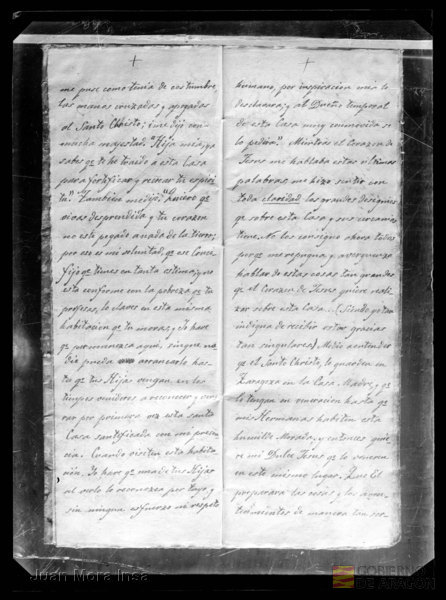 me puse como tenia de costumbre,
las manos cruzadas y apegadas
al Santo Christo; i me dijo con
mucha majestad: "Hija mia, ya
sabes qe te he traido a esta Casa
para fortificar y recrear tu espiri-
tu." Tambien me dijo: "Quiero qe
vivas desprendida y tu corazon
no esté pegado a nada de la tierra;
por eso es mi voluntad, qe ese Cruci-
fijo qe tienes en tanta estima, y no
esta conforme con la pobreza qe tu
profesas, lo claves en esta misma
habitacion qe tu moras, y lo hare
qe permanezca aqui, sin qe na-
die pueda arrancarlo has-
ta qe tus Hijas vengan en los
tiempos venideros a reconocer y
por primera vez esta santa
Casa santificada con mi presen-
cia. Cuando visiten esta habita-
cion, Yo hare qe una de tus Hijas
al verlo lo reconozca por tuyo, y
sin ningun esfuerzo ni respeto
humano, por inspiracion mia lo
desclavara; y al Dueño temporal
de esta Casa muy conmovida se
lo pedira." Mientras el Corazon de
Jesus me hablaba estas ultimas
palabras me hizo sentir con
toda claridad los grandes designios
qe sobre esta Casa y sus cercanias
tiene. No los consigno ahora todos
porqe me repugna y averguenzo
hablar de estas cosas tan grandes
qe el Corazon de Jesus quiere reali-
zar sobre esta Casa... (Siendo yo tan
indigna de recibir estas gracias
tan singulares). Me dio a entender
qe el Santo Christo, lo guarden en
Zaragoza en la Casa Madre, y qe
lo tengan en veneracion hasta qe
mis Hermanas habiten esta
humilde Morada, y entonces quie-
re mi Dulce Jesus qe lo veneren
en este mismo lugar. Que El
preparara las cosas y los acon-
tecimientos de manera tan ser
Juan Mora Insa
GOBIERNO
DE ARAGON